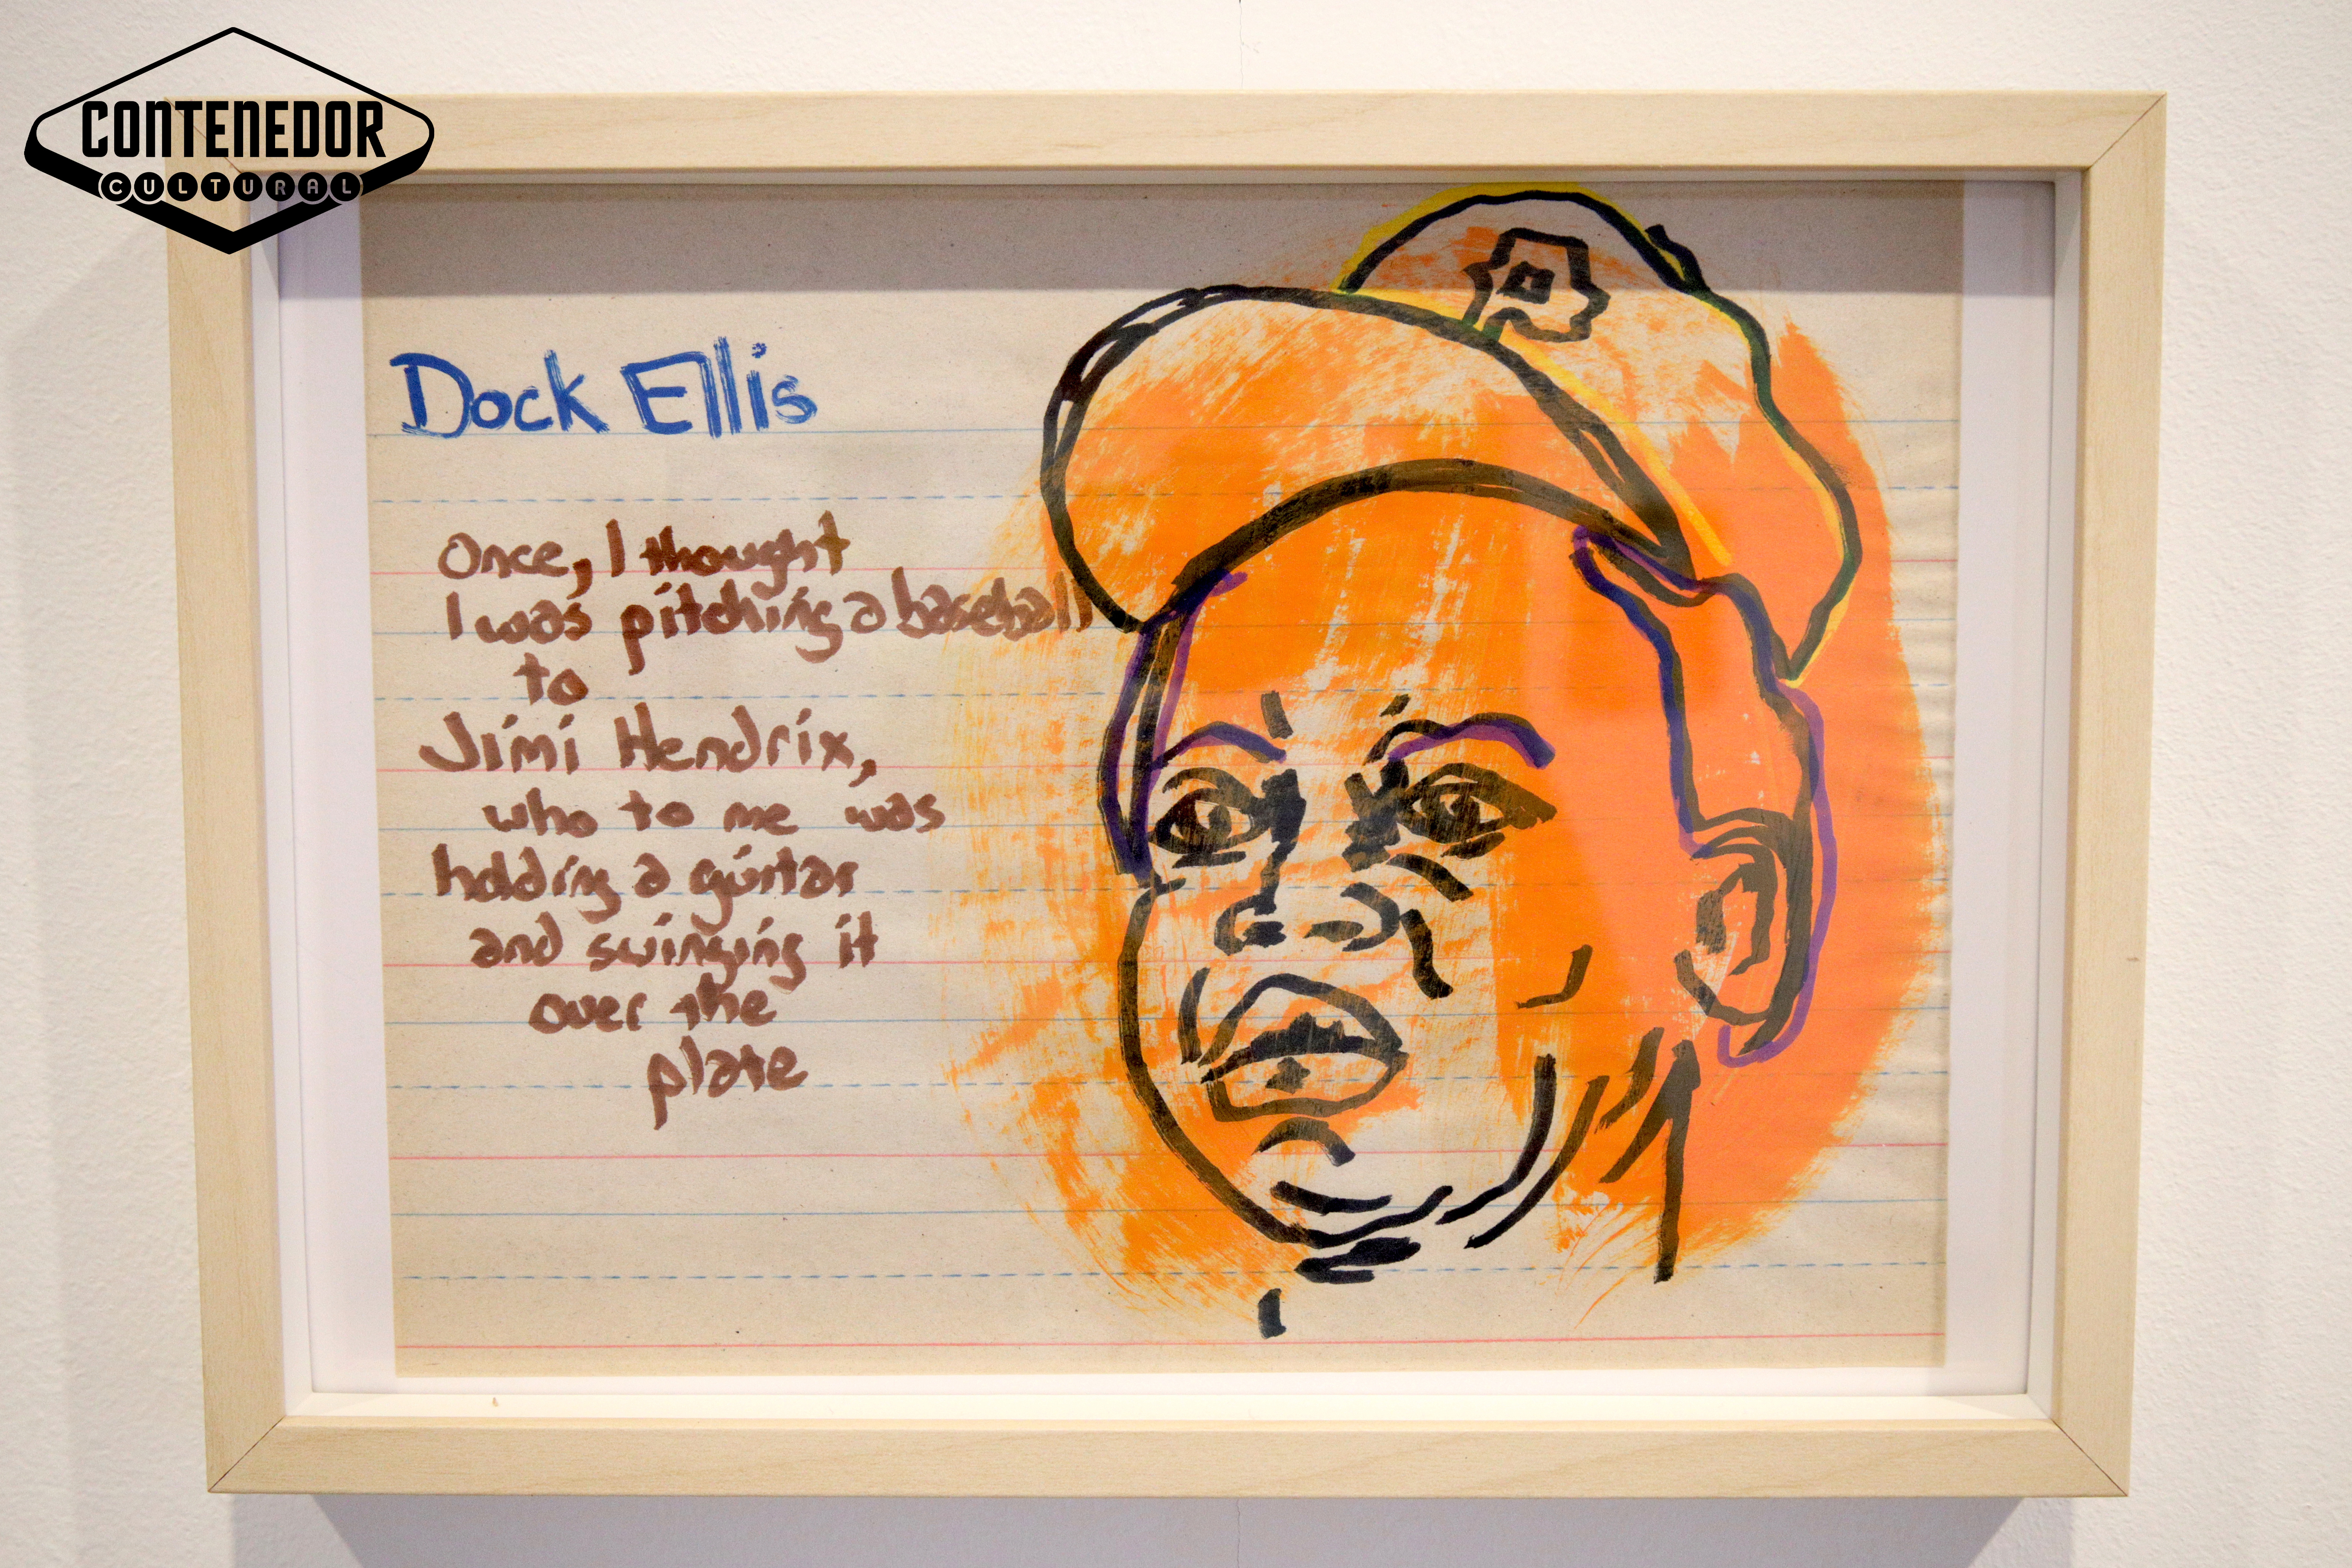 CONTENEDOR
CULTURAL
Dock Ellis
Once, I thought
I was pitching a baseball
to
Jimi Hendrix,
who to me was
holding a guitar
and swinging it
over the
plate